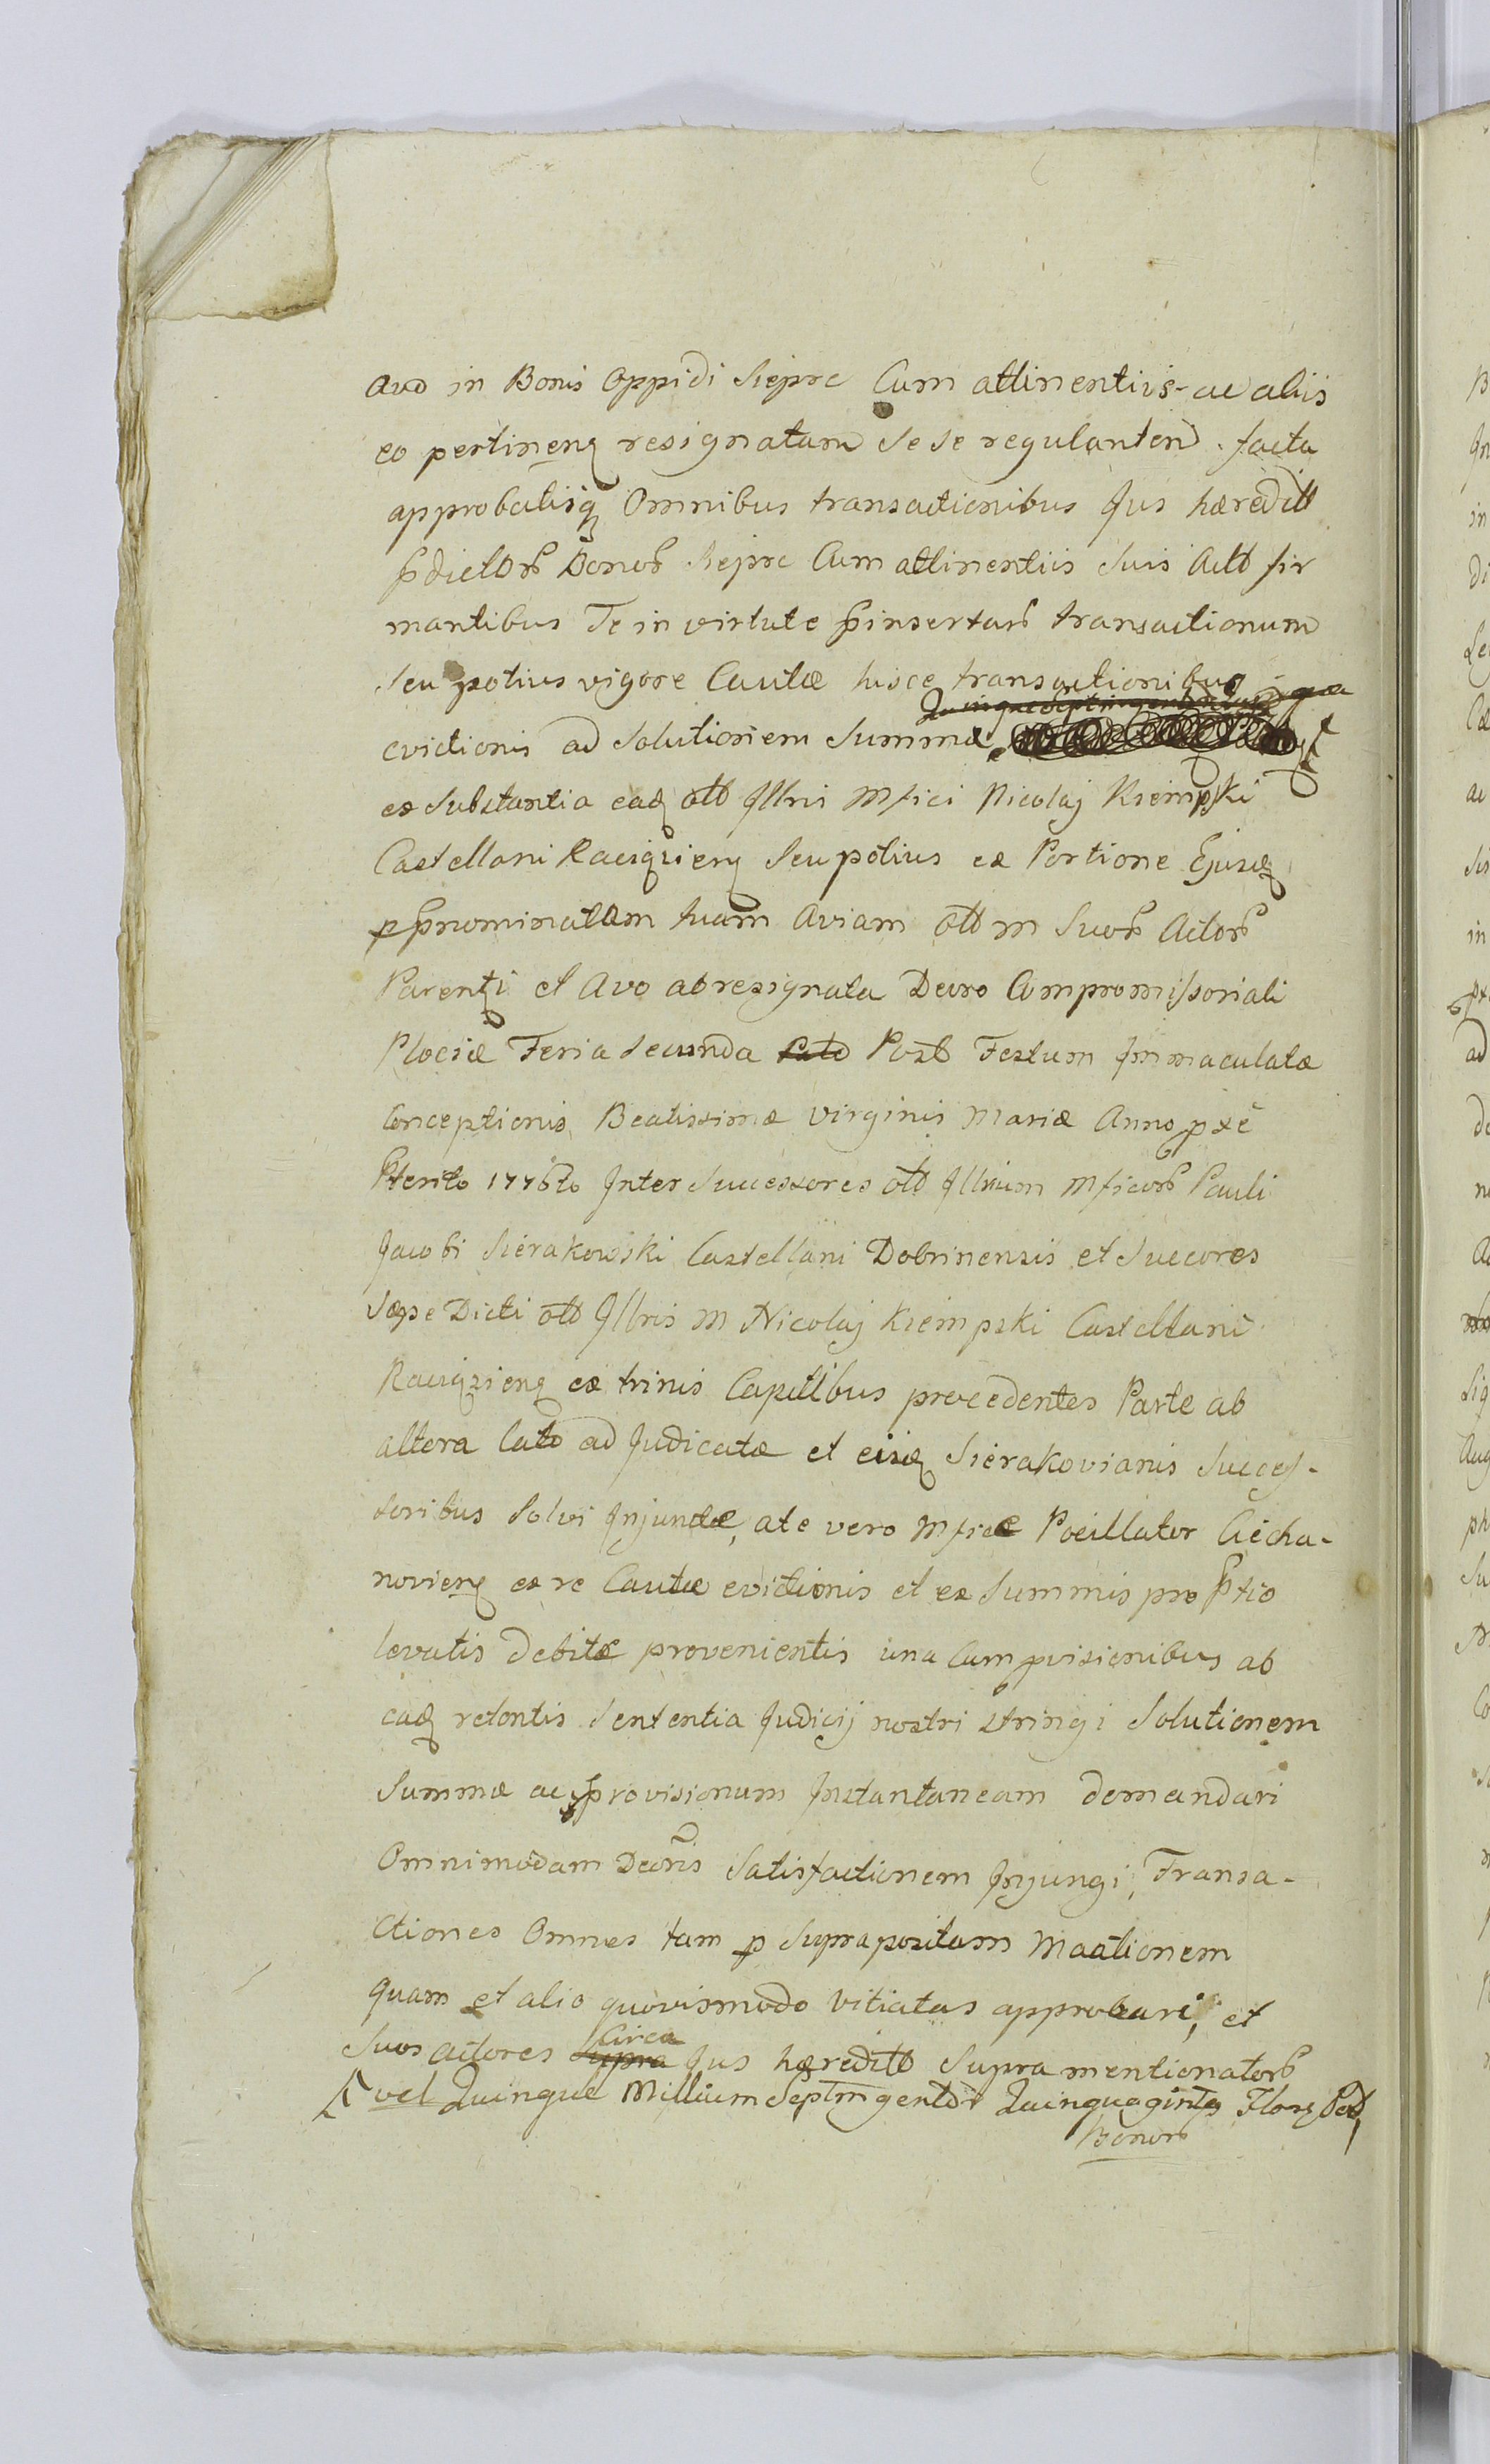 avo in Bonis Oppidi Sieprc Cum attinentiis ac aliis
eo pertinenq resignatam sese regulanten. facta
approbatisq Omnibus transactionibus Jus hæreditt
pdictor Bonor Sieprc Cum attinentiis suis Actt fir
mantibus Te in virtute pinsertar transactionum
seu potius vigore Cautæ hisce transactionibus
evictionis ad solutionem Summæ
ex substantia eadq olt Illris Mfici Nicolaj Krempski
Castellani Raciązienq seu potius ex Portione Ejusdq
p pnominatam tuam Aviam olt m Suor Actor
Parenti et Avo abresignata Decro Compromissoriali
Plociæ Feria secunda Post Festum Immaculatæ
Conceptionis Beatissimæ Virginis Mariæ Anno præ
terito 1776to Inter Successores olt Illrium Mficor Pauli
Jacobi Sierakowski Castellani Dobrinensis et Succores
sæpe Dicti olt Illris M Nicolaj Krempski Castellani
Raciązienq ex trinis Capitibus procedentes Parte ab
altera lato adjudicatæ et eisdq Sierakovianis Succes-
soribus Solvi Injunctæ, a te vero Mfice Pocillator Ciecha-
novienq ex re Cautæ evictionis et ex Summis pro ptio
levatis debitæ provenientis una Cum pvisionibus ab
eadq retentis Sententia Judicij nostri stringi Solutionem
Summæ ac provisionum Instantaneam demandari
Omnimodam Decris Satisfactionem Injungi, Transa-
ctiones Omnes tam p suprapositam Maationem
quam et alio quovismodo vitiatas approbari, et
Suos actores Circa Jus hæreditt supra mentionator
vel Quinque Millium Septingentor Quinquaginta Flor Pol
Bonor